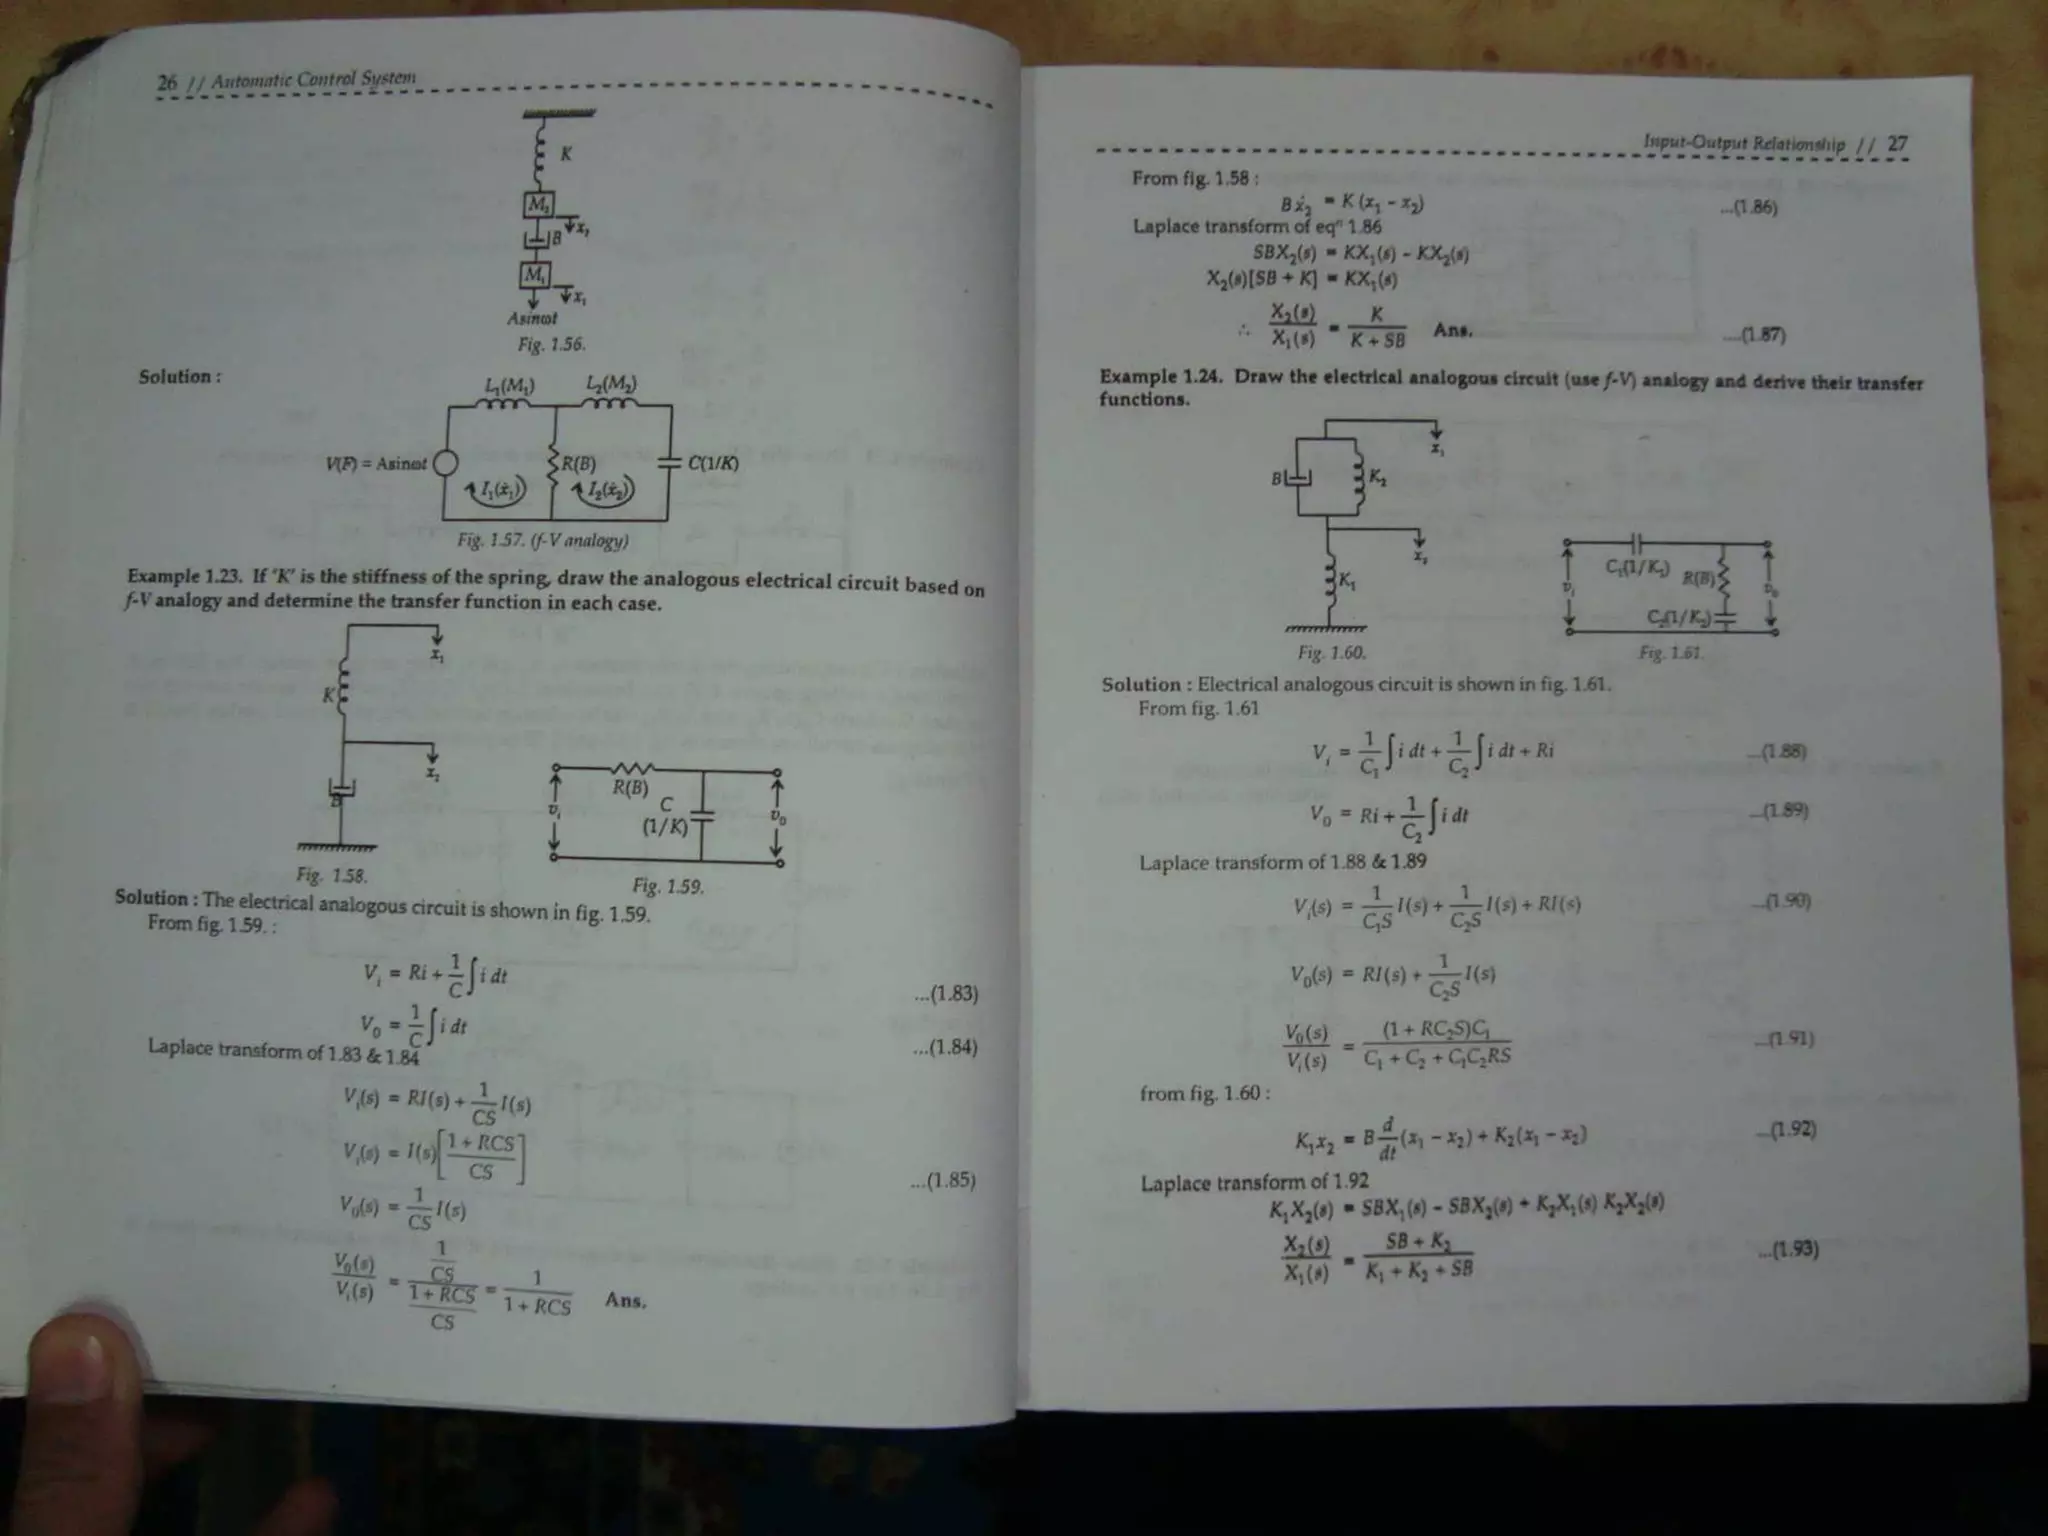 26 // Automatic Control System
K
M₂
x₂
B
M₁
x₁
Asinωt
Fig. 1.56.
Solution :
L₁(M₁) L₂(M₂)
V(F) = Asinωt R(B) C(1/K)
I₁(ẋ₁) I₂(ẋ₂)
Fig. 1.57. (f-V analogy)
Example 1.23. If 'K' is the stiffness of the spring, draw the analogous electrical circuit based on
f-V analogy and determine the transfer function in each case.
x₁
K
x₂
B
Fig. 1.58.
R(B)
vᵢ C v₀
(1/K)
Fig. 1.59.
Solution : The electrical analogous circuit is shown in fig. 1.59.
From fig. 1.59. :
Vᵢ = Ri + 1/C ∫ i dt ...(1.83)
V₀ = 1/C ∫ i dt ...(1.84)
Laplace transform of 1.83 & 1.84
Vᵢ(s) = RI(s) + 1/CS I(s)
Vᵢ(s) = I(s)[1 + RCS / CS] ...(1.85)
V₀(s) = 1/CS I(s)
V₀(s)/Vᵢ(s) = (1/CS)/((1 + RCS)/CS) = 1/(1 + RCS) Ans.
Input-Output Relationship // 27
From fig. 1.58 :
Bẋ₂ = K (x₁ - x₂) ...(1.86)
Laplace transform of eqⁿ 1.86
SBX₂(s) = KX₁(s) - KX₂(s)
X₂(s)[SB + K] = KX₁(s)
∴ X₂(s)/X₁(s) = K/(K + SB) Ans. ...(1.87)
Example 1.24. Draw the electrical analogous circuit (use f-V) analogy and derive their transfer
functions.
x₁
B K₂
x₂
K₁
Fig. 1.60.
C₁(1/K₁) R(B)
vᵢ v₀
C₂(1/K₂)
Fig. 1.61.
Solution : Electrical analogous circuit is shown in fig. 1.61.
From fig. 1.61
Vᵢ = 1/C₁ ∫ i dt + 1/C₂ ∫ i dt + Ri ...(1.88)
V₀ = Ri + 1/C₂ ∫ i dt ...(1.89)
Laplace transform of 1.88 & 1.89
Vᵢ(s) = 1/C₁S I(s) + 1/C₂S I(s) + RI(s) ...(1.90)
V₀(s) = RI(s) + 1/C₂S I(s)
V₀(s)/Vᵢ(s) = (1 + RC₂S)C₁/(C₁ + C₂ + C₁C₂RS) ...(1.91)
from fig. 1.60 :
K₁x₂ = B d/dt (x₁ - x₂) + K₂(x₁ - x₂) ...(1.92)
Laplace transform of 1.92
K₁X₂(s) = SBX₁(s) - SBX₂(s) + K₂X₁(s) K₂X₂(s)
X₂(s)/X₁(s) = (SB + K₂)/(K₁ + K₂ + SB) ...(1.93)